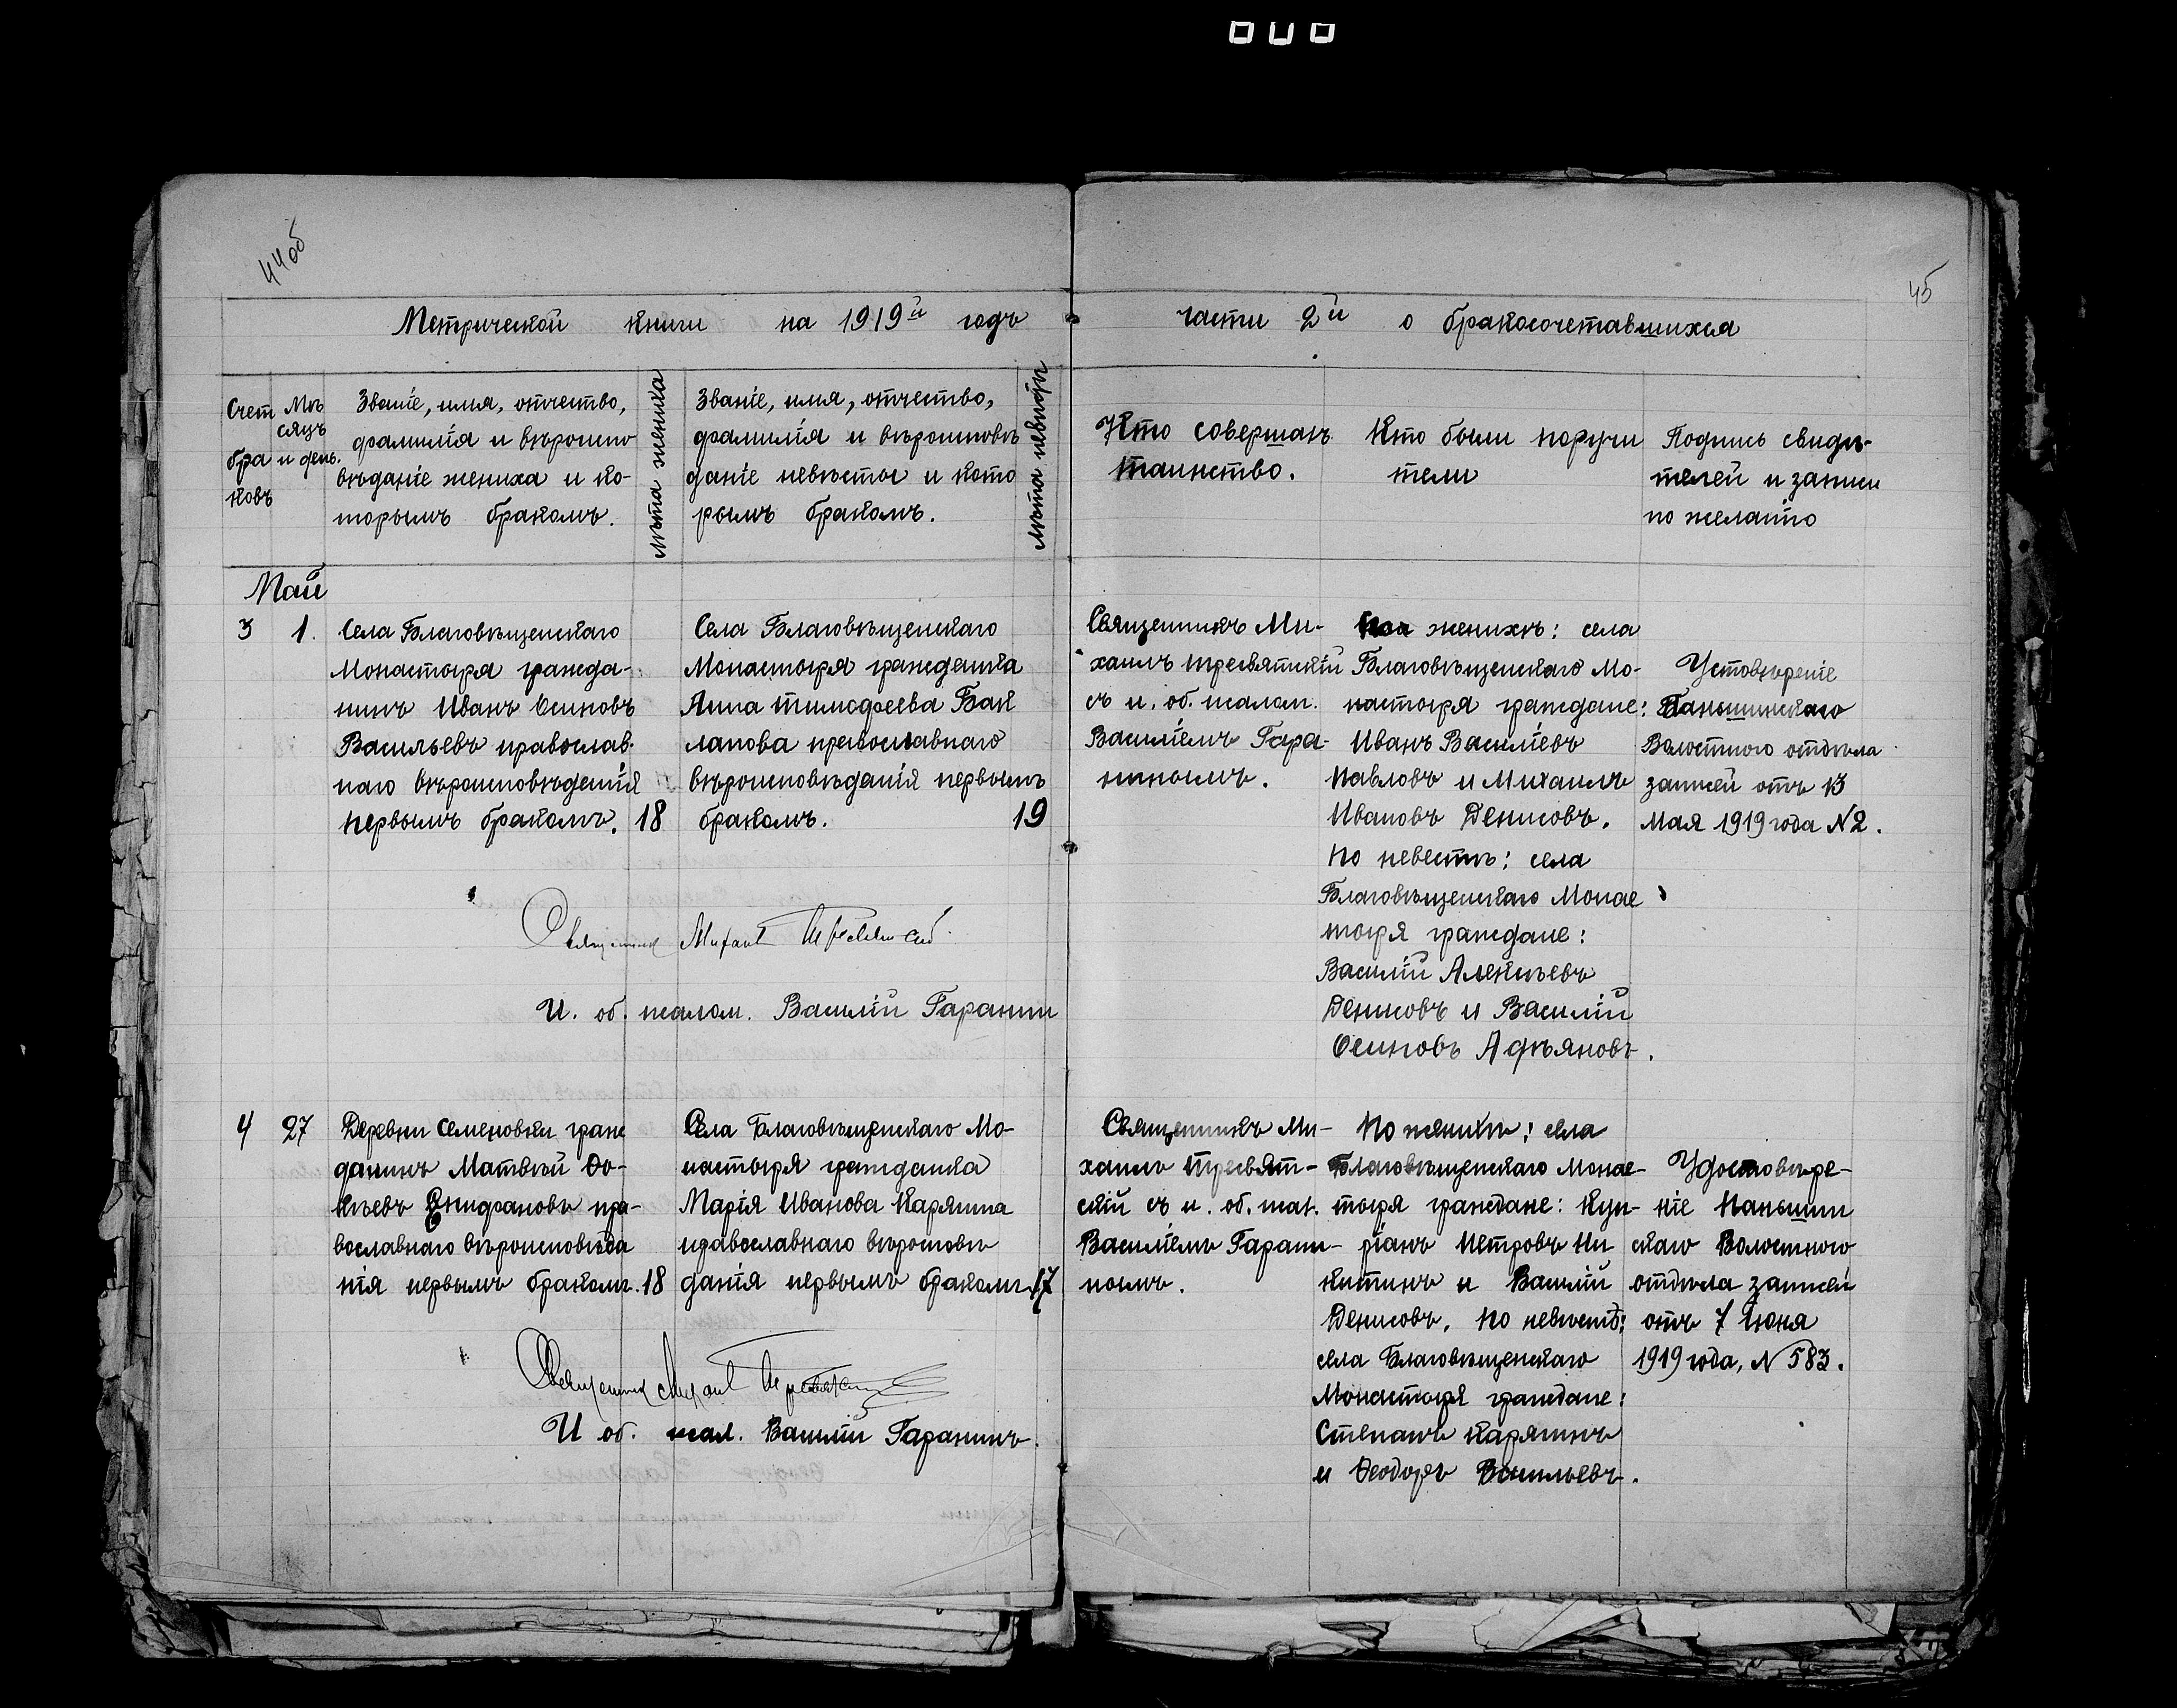 44об
45
Метрической книги на 1919й годъ
части 2й о бракосочетавшихся
Счет
бра
ковъ
Мѣ
сяцъ
и день.
Званіе, имя, отчество,
фамилія и вѣроиспо
вѣданіе жениха и ко-
торымъ бракомъ.
лѣта жениха
Званіе, имя, отчество,
фамилія и вѣроисповѣ
даніе невѣсты и кото
рымъ бракомъ.
лѣта невѣсты
Кто совершалъ
таинство.
Кто были поручи
тели
Подпись свидѣ-
телей и записи
по желанію
Май
3
1.
Села Благовѣщенскаго
Монастыря гражда-
нинъ Иванъ Осиповъ
Васильевъ православ-
наго вѣроисповѣденія
первымъ бракомъ.
18
Села Благовѣщенскаго
Монастыря гражданка
Анна Тимофеева Бак
ланова православнаго
вѣроисповѣданія первымъ
бракомъ.
19
Священникъ Ми-
хаилъ Тресвятскій
съ и. об. псалом.
Василіемъ Гара-
нинымъ.
женихѣ: села
Благовѣщенскаго Мо-
настыря граждане:
Иванъ Василіевъ
Павловъ и Михаилъ
Ивановъ Денисовъ.
По невестѣ: села
Благовѣщенскаго Монас
тыря граждане:
Василій Алексѣевъ
Денисовъ и Василій
Осиповъ Афѣяновъ.
Устовѣреніе
Паньшинскаго
Волостного отдѣла
записей отъ 13
мая 1919 года №2.
Священник Михаил Тресвятский
И. об. псалом. Василій Гаранин
4
27
Деревни Семеновки граж
данинъ Матвѣй Фо-
кѣевъ Епифановъ пра-
вославнаго вѣроисповѣда
нія первымъ бракомъ.
18
Села Благовѣщенскаго Мо-
настыря гражданка
Марія Иванова Карягина
православнаго вѣроисповѣ
данія первымъ бракомъ.
17
Священникъ Ми-
хаилъ Тресвят-
скій съ и. об. псал.
Василіемъ Гарани-
нымъ.
По женихѣ: села
Благовѣщенскаго Монас-
тыря граждане: Куп-
ріанъ Петровъ Ни
китинъ и Василій
Денисовъ. По невѣстѣ:
села Благовѣщенскаго
Монастыря граждане:
Степанъ Карягинъ
и Феодоръ Васильевъ.
Удостовѣре-
ніе Паньшин
скаго Волостного
отдѣла записей
отъ 7 Іюня
1919 года, № 583.
Священник Михаил Тресвятский
И об. псал. Василій Гаранинъ.